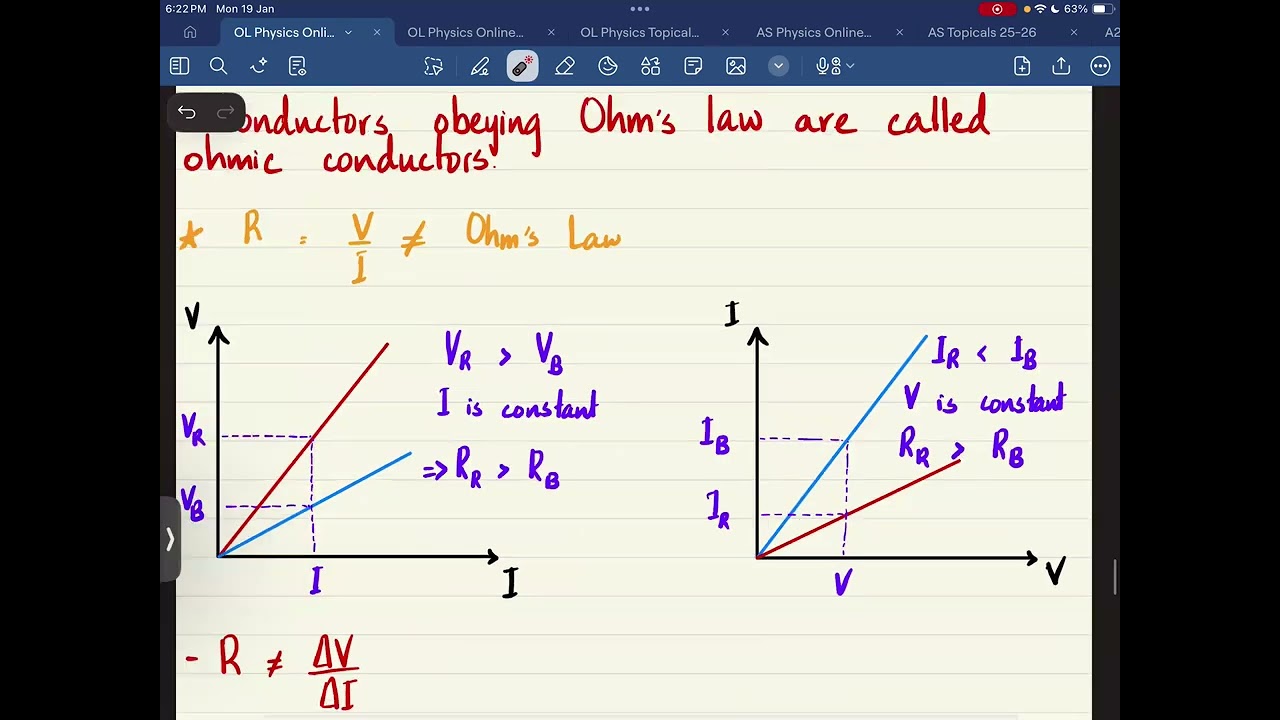 6:22 PM Mon 19 Jan
63%
OL Physics Onli...
OL Physics Online...
OL Physics Topical...
AS Physics Online...
AS Topicals 25-26
A2
onductors obeying Ohm's law are called
ohmic conductors.
* R = V/I ≠ Ohm's Law
V
V_R > V_B
I is constant
⇒ R_R > R_B
V_R
V_B
I
I
I
I_R < I_B
V is constant
R_R > R_B
I_B
I_R
V
V
- R ≠ ΔV/ΔI